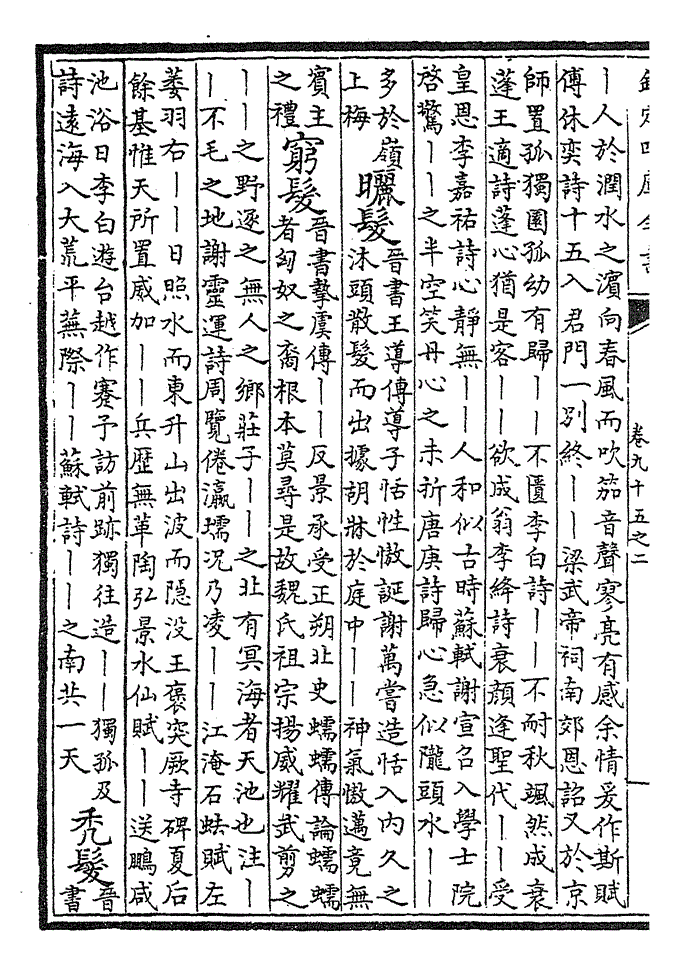 欽定四庫全書
卷九十五之二
丨人於潤水之濱向春風而吹笳音聲寥亮有感余情爰作斯賦
傅休奕詩十五入君門一别終丨丨梁武帝祠南郊恩詔又於京
師置孤獨園孤幼有歸丨丨不匱李白詩丨丨不耐秋颯然成衰
蓬王適詩蓬心猶是客丨丨欲成翁李絳詩衰顔逢聖代丨丨受
皇恩李嘉祐詩心靜無丨丨人和似古時蘇軾謝宣召入學士院
啓驚丨丨之半空笑丹心之未折唐庚詩歸心急似隴頭水丨丨
多於嶺
上梅
曬髮
晉書王導傳導子恬性慠誕謝萬嘗造恬入内久之
沐頭散髮而出據胡牀於庭中丨丨神氣慠邁竟無
賓主
之禮
窮髮
晉書摯虞傳丨丨反景承受正朔北史蠕蠕傳論蠕蠕
者匈奴之裔根本莫尋是故魏氏祖宗揚威耀武剪之
丨丨之野逐之無人之鄉莊子丨丨之北有冥海者天池也注丨
丨不毛之地謝靈運詩周覽倦瀛壖况乃凌丨丨江淹石蚨賦左
萎羽右丨丨日照水而東升山出波而隱没王褒突厥寺碑夏后
餘基惟天所置威加丨丨兵歷無革陶弘景水仙賦丨丨送鵬咸
池浴日李白遊台越作蹇予訪前跡獨往造丨丨獨孤及
詩遠海入大荒平蕪際丨丨蘇軾詩丨丨之南共一天
禿髮
晉
書